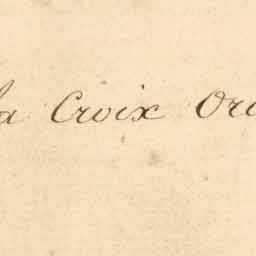 la Croix Ord